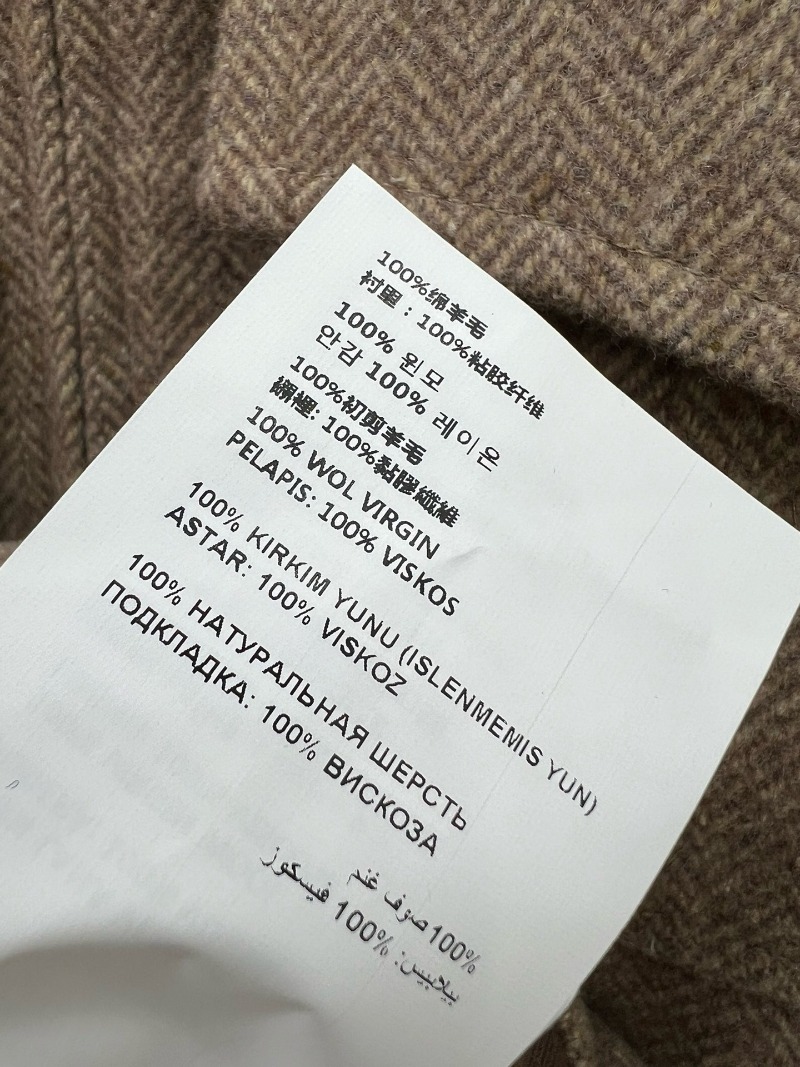 100%绵羊毛
衬里：100%粘胶纤维
100% 원모
안감 100% 레이온
100%初剪羊毛
網裡: 100%黏膠纖維
100% WOL VIRGIN
PELAPIS: 100% VISKOS
100% KIRKIM YUNU (ISLENMEMIS YUN)
ASTAR: 100% VISKOZ
100% НАТУРАЛЬНАЯ ШЕРСТЬ
ПОДКЛАДКА: 100% ВИСКОЗА
100% صوف غنم
بيلابيس: 100% فيسكوز